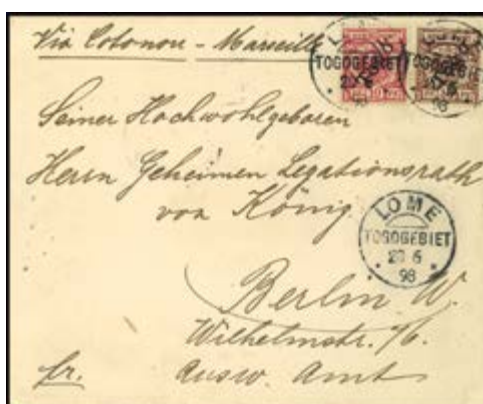 Via Cotonou - Marseille
LOME
TOGOGEBIET
20 6
98
LOME
TOGOGEBIET
20 6
98
Seiner Hochwohlgeboren
Herrn Geheimen Legationsrath
von König
LOME
TOGOGEBIET
20 6
98
Berlin W.
Wilhelmstr. 76.
fr.
Ausw. Amt